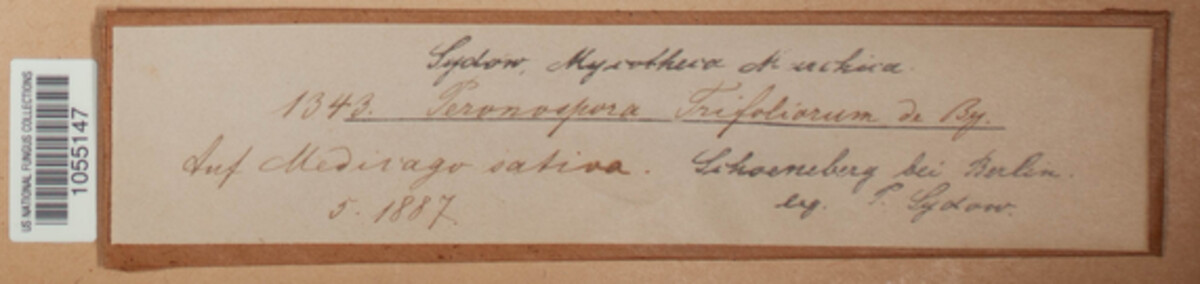 US NATIONAL FUNGUS COLLECTIONS
1055147
Sydow, Mycotheca Marchica.
1343. Peronospora Trifoliorum de By.
Auf Medicago sativa. Schoeneberg bei Berlin.
5. 1887. leg. P. Sydow.